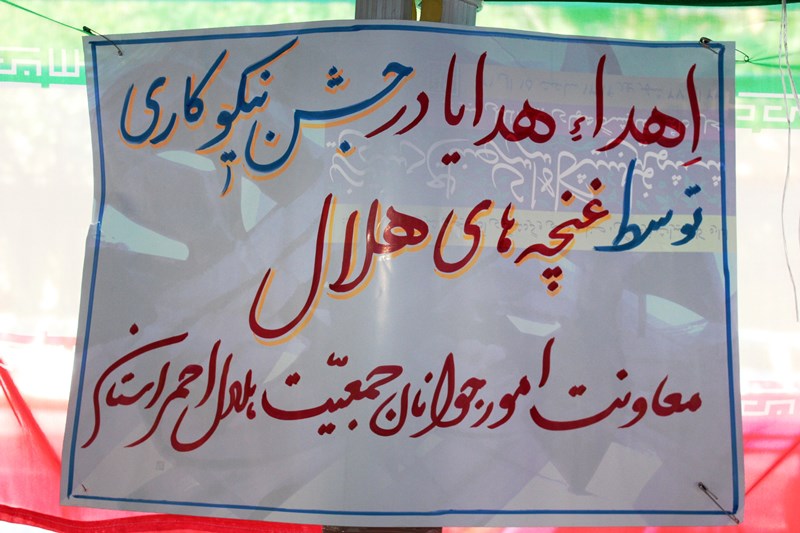 اِهداء هدایا در جشن نیکوکاری
توسط غنچه های هلال
معاونت امور جوانان جمعیّت هلال احمر استان